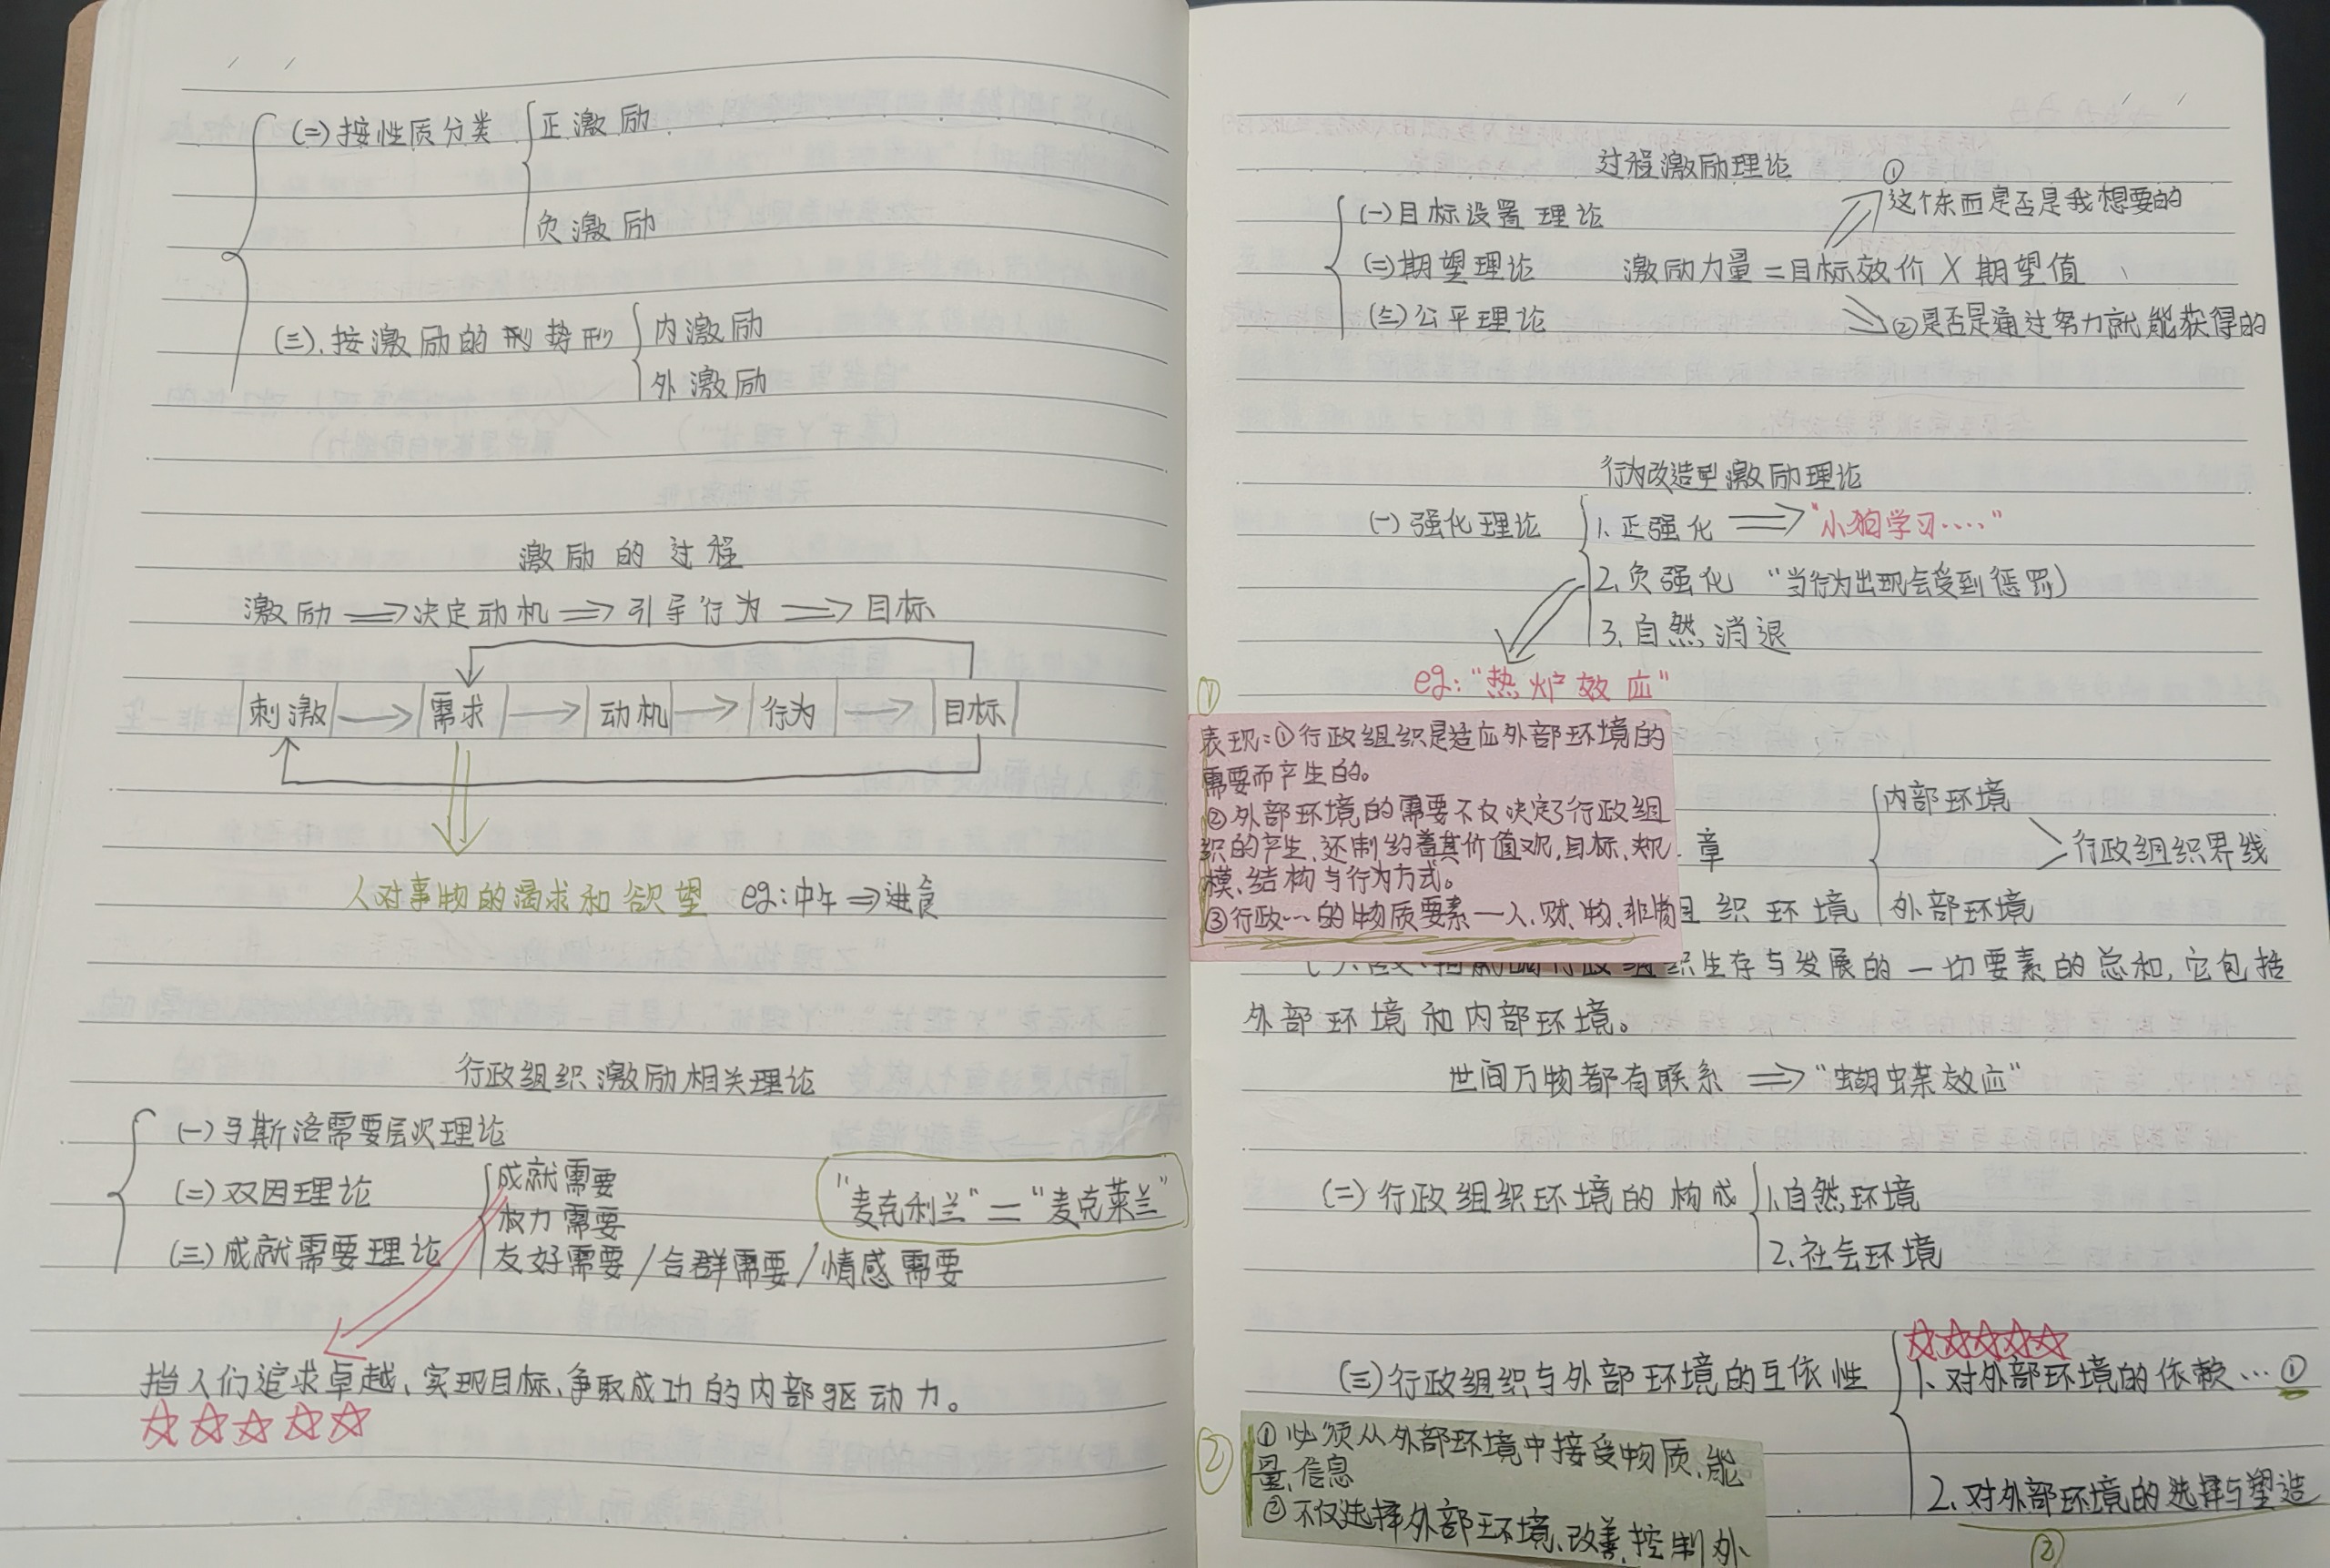 (二)按性质分类
正激励
负激励
(三).按激励的形势形
内激励
外激励
激励的过程
激励⇒决定动机⇒引导行为⇒目标
刺激→需求→动机→行为→目标
人对事物的渴求和欲望 eg:中午⇒进食
行政组织激励相关理论
(一)马斯洛需要层次理论
(二)双因理论
(三)成就需要理论
成就需要
权力需要
友好需要/合群需要/情感需要
"麦克利兰"="麦克莱兰"
指人们追求卓越、实现目标、争取成功的内部驱动力。
☆☆☆☆☆
过程激励理论
(一)目标设置理论
(二)期望理论 激励力量=目标效价×期望值
(三)公平理论
①这个东西是否是我想要的
②是否是通过努力就能获得的
行为改造型激励理论
(一)强化理论
1.正强化⇒"小狗学习....."
2.负强化 "当行为出现会受到惩罚)
3.自然消退
eg:"热炉效应"
①
表现:①行政组织是适应外部环境的
需要而产生的。
②外部环境的需要不仅决定了行政组
织的产生、还制约着其价值观,目标、规
模、结构与行为方式。
③行政…的物质要素一人、财、物、非
章
织环境
内部环境
外部环境
行政组织界线
织生存与发展的一切要素的总和,它包括
外部环境和内部环境。
世间万物都有联系⇒"蝴蝶效应"
(二)行政组织环境的构成
1.自然环境
2.社会环境
(三)行政组织与外部环境的互依性
☆☆☆☆☆
1.对外部环境的依赖…①
2.对外部环境的选择与塑造
②
②
①必须从外部环境中接受物质、能
量、信息
②不仅选择外部环境、改善、控制外